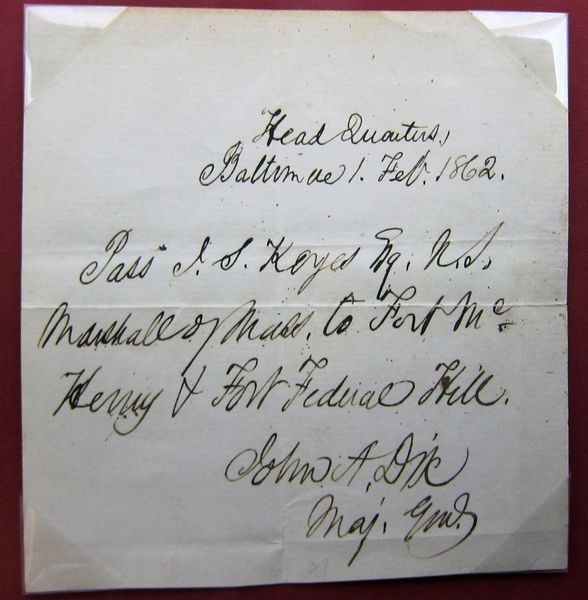 Head Quarters,
Baltimore 1. Feb. 1862.
Pass J. S. Keyes Esq. U.S.
Marshall of Mass. to Fort Mc
Henry & Fort Federal Hill.
John A. Dix
Maj. Genl.